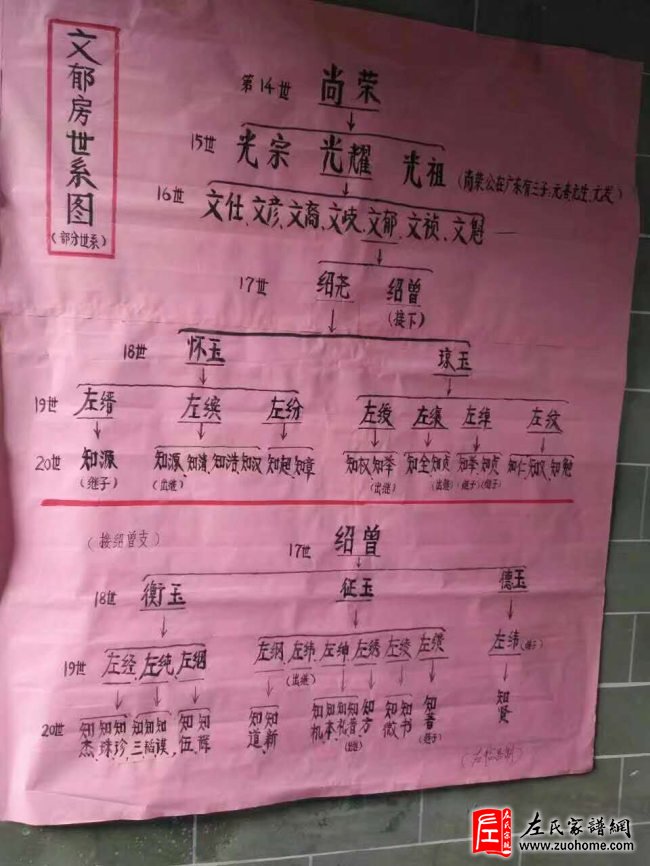 文郁房世系图
(部分世系)
第14世 尚荣
15世 光宗 光耀 光祖 (尚荣公在广东有三子:元善、元生、元发)
16世 文仕、文彦、文裔、文歧、文郁、文祯、文魁
17世 绍尧 绍曾
(接下)
18世 怀玉 琼玉
19世 左缙 左缤 左纷 左绶 左缫 左绰 左纹
20世 知源 知源、知清、知浩知汉 知超、知章 知权知举 知全知贞 知举、知贞 知仁、知义、知勉
(继子) (出继) (出继) (出继) (继子) (继子)
(接绍曾支)
17世 绍曾
18世 衡玉 征玉 德玉
19世 左经、左纯、左纲 左纲、左纬、左绅、左绣、左绫、左 左纬(继子)
(出继)
20世 知杰、知珠、知珍 知三、知韬、知谟、知伍、知辉 知道、知新 知机、知本、知礼、知普 知方 知微、知书 知普 知贤
(出继) (继子)
左氏家譜網
www.zuohome.com